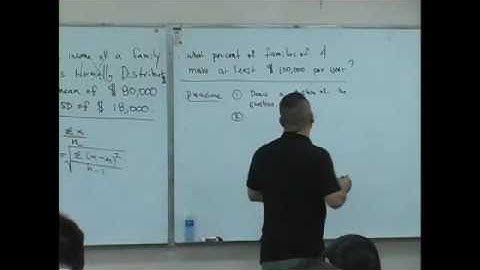 income of a family
is Normally Distribut
mean of $ 80,000
SD of $ 18,000
Σx
n
= √ Σ(x-x̄)²
n-1
what percent of families of 4
make at least $ 100,000 per year?
Procedure ① Draw a of the
question.
②